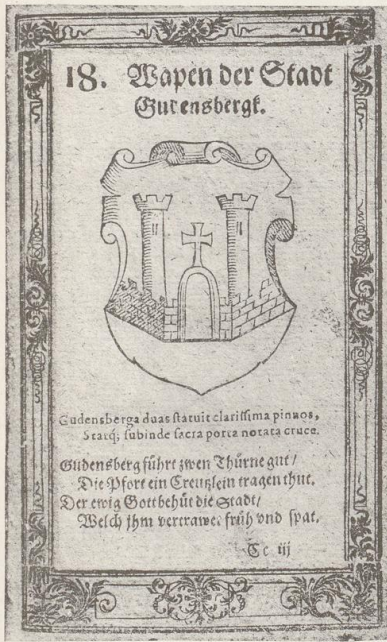 18. Wapen der Stadt
Gudensbergk.
Gudensberga duas statuit clarissima pinnos,
Statq; subinde sacra porta notata cruce.
Gudensberg führt zwen Thürne gut/
Die Pfort ein Creutzlein tragen thut.
Der ewig Gott behüt die Stadt/
Welch jhm vertrawet früh vnd spat.
Cc iij